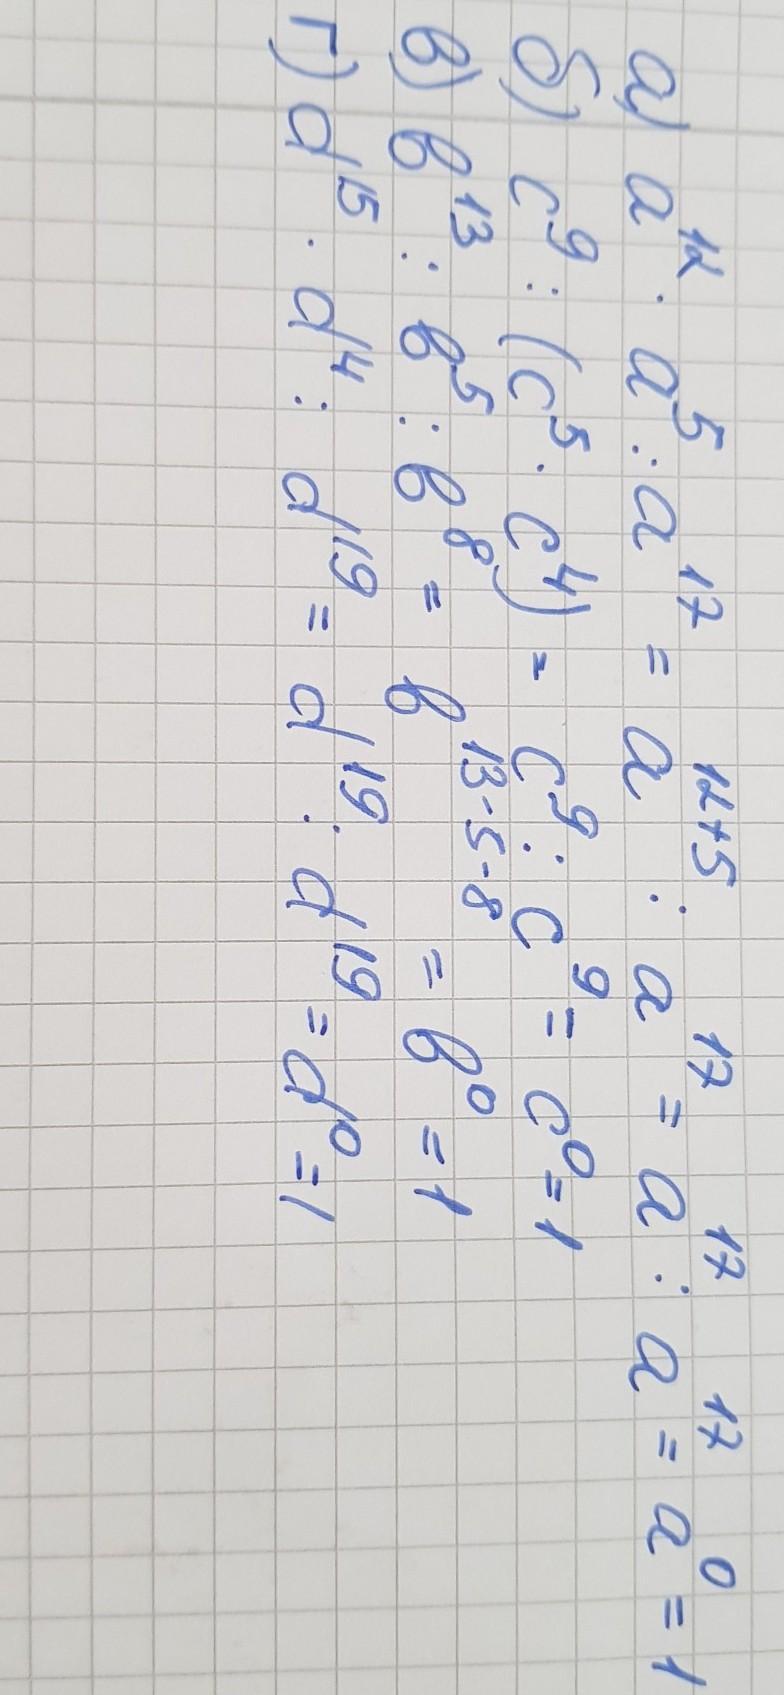 а) a¹² · a⁵ : a¹⁷ = a¹²⁺⁵ : a¹⁷ = a¹⁷ : a¹⁷ = a⁰ = 1
б) c⁹ : (c⁵ · c⁴) = c⁹ : c⁹ = c⁰ = 1
в) b¹³ : b⁵ : b⁸ = b¹³⁻⁵⁻⁸ = b⁰ = 1
г) d¹⁵ · d⁴ : d¹⁹ = d¹⁹ : d¹⁹ = d⁰ = 1